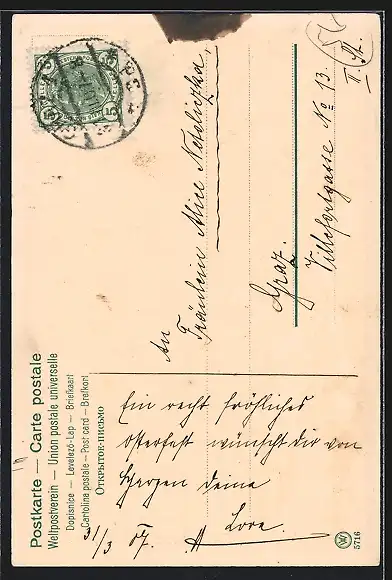 Postkarte — Carte postale
Weltpostverein — Union postale universelle
Dopisnice — Levelező-Lap — Briefkaart
Cartolina postale — Post card — Brefkort
Открытое письмо
An
Fräulein Alice Netoliczka,
Graz.
Villefortgasse No 13
II. St.
Ein recht fröhliches
Osterfest wünscht dir von
Herzen deine
Lore.
31/3 07.
5716